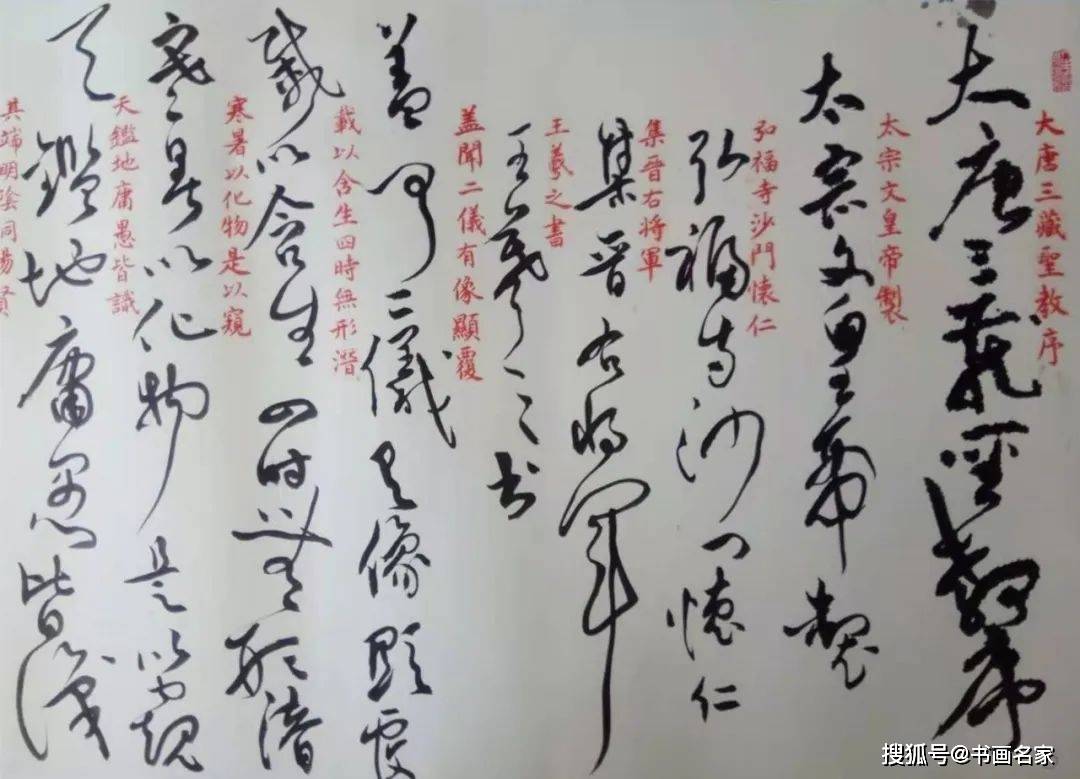 大唐三藏聖教序
大唐三藏聖教序
太宗文皇帝製
太宗文皇帝製
弘福寺沙門懷仁
弘福寺沙門懷仁
集晉右將軍
集晉右將軍
王羲之書
王羲之書
蓋聞二儀有像顯覆
蓋聞二儀有像顯覆
載以含生四時無形潛
載以含生四時無形潛
寒暑以化物是以窺
寒暑以化物是以窺
天鑑地庸愚皆識
天鑑地庸愚皆識
其端明陰同陽賢
搜狐号@书画名家